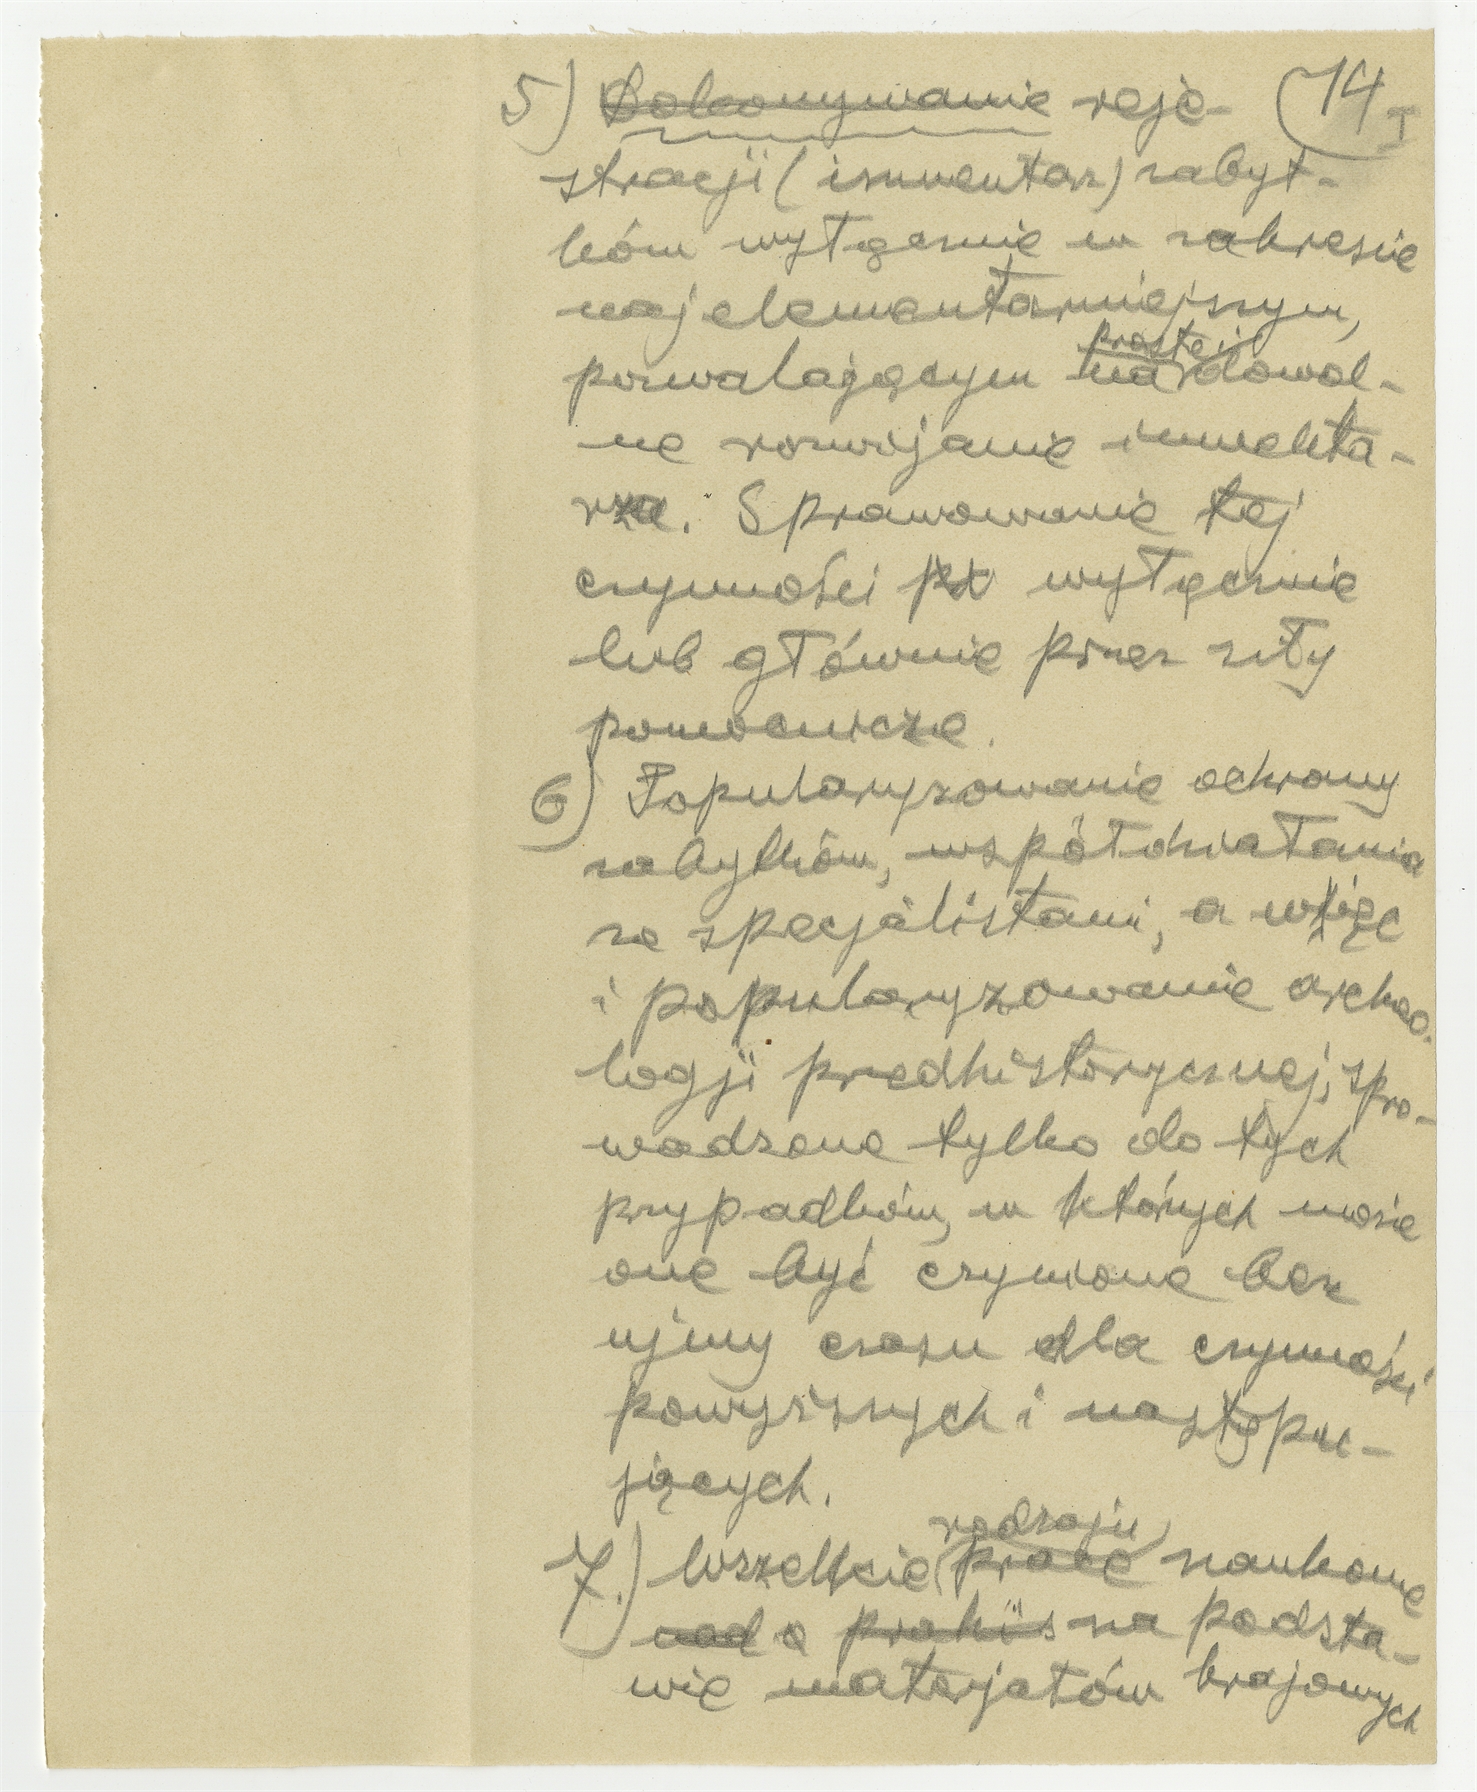 5) Dokonywanie reje- 14 I
stracji (inwentarz) zabyt-
ków wyłącznie w zakresie
najelementarniejszym,
prostej
pozwalającym na dowol-
ne rozwijanie inwenta-
rza. Sprawowanie tej
czynności wyłącznie
lub głównie przez siły
pomocnicze.
6) Popularyzowanie ochrony
zabytków, współdziałania
ze specjalistami, a więc
i popularyzowanie archeo-
logji predhistorycznej, spro-
wadzone tylko do tych
przypadków, w których może
one być czynione bez
ujmy czasu dla czynności
powyższych i nastepu-
jących.
rodzaju
7.) Wszelkie prace naukowe
nad a na podsta-
wie materjałów krajowych